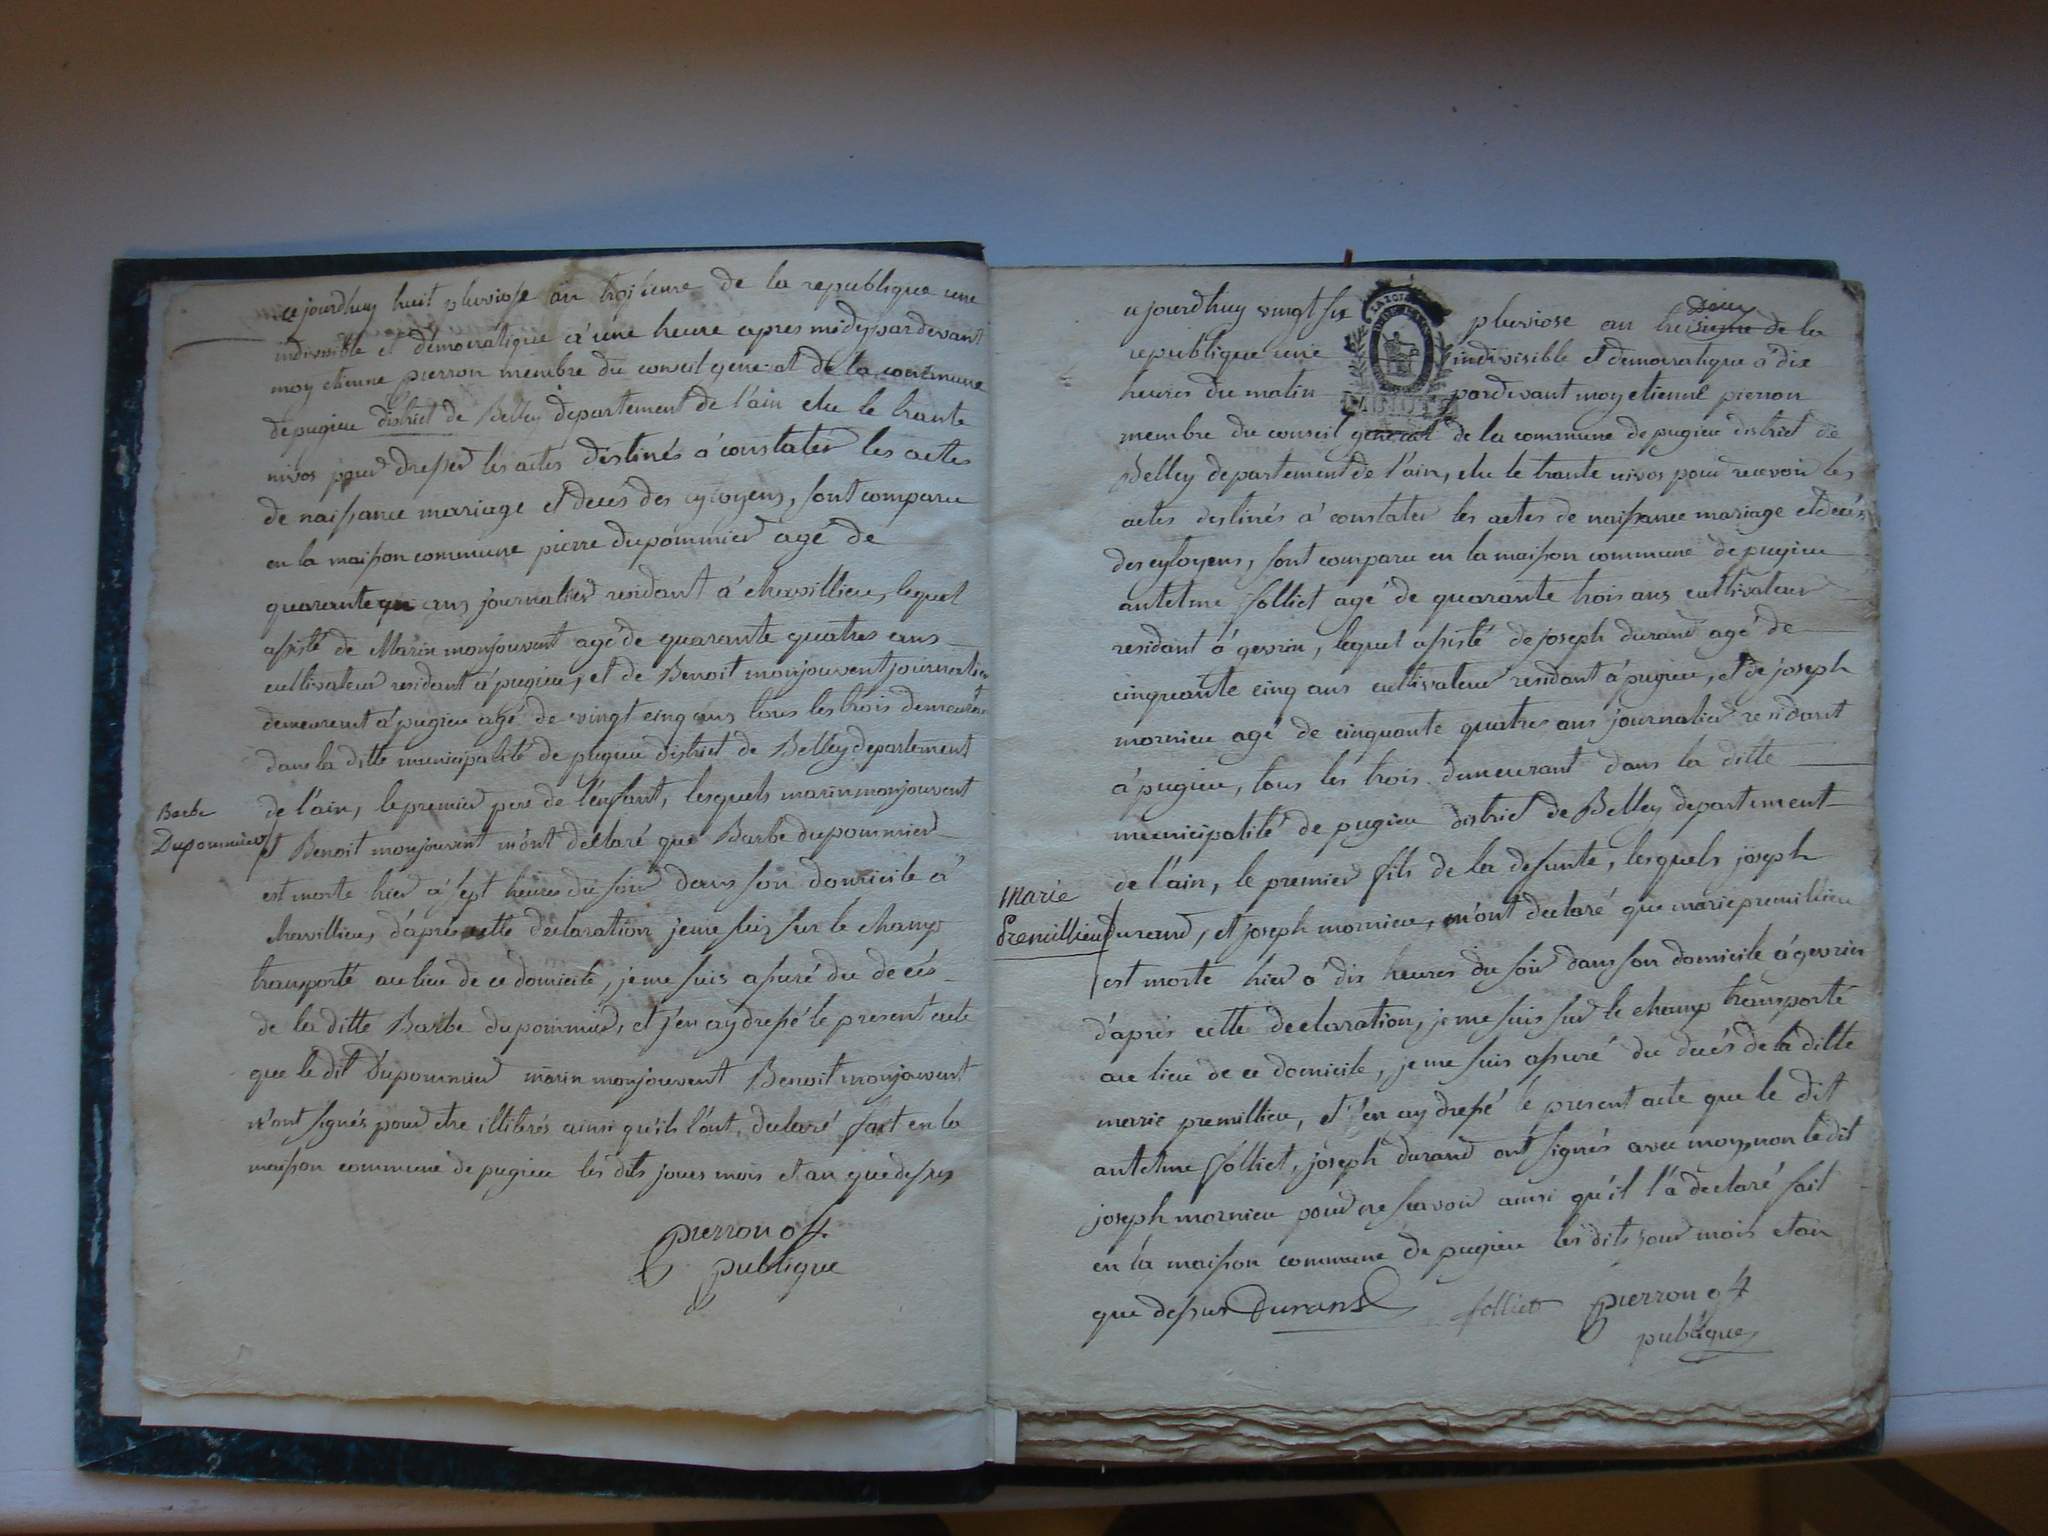 ajourdhuy huit pluviose an troisieme de la republique une
indivisible et démocratique à une heure apres midy pardevant
moy etienne pierron membre du conseil general de la commune
de pugieu district de Belley departement de l'ain elu le trante
nivos pour dresser les actes destinés à constater les actes
de naissance mariage et deces des cytoyens, sont comparu
en la maison commune pierre dupommier agé de
quarante un ans journalier residant à chavillieu, lequel
assisté de Marin monjouvent agé de quarante quatres ans
cultivateur residant à pugieu, et de Benoit monjouvent journalier
demeurent à pugieu agé de vingt cinq ans tous les trois demeurant
dans la ditte municipalité de pugieu district de Belley departement
Barbe
Dupommier
de l'ain, le premier pere de l'enfant, lesquels marin monjouvent
et Benoit monjouvent m'ont déclaré que Barbe dupommier
est morte hier à sept heures du soir dans son domicile à
chavillieu, d'après cette déclaration je me suis sur le champ
transporté au lieu de ce domicile, je me suis assuré du décés
de la ditte Barbe dupommier, et j'en ay dressé le present acte
que le dit Dupommier marin monjouvent Benoit monjouvent
n'ont signés pour etre illitérés ainsi qu'ils l'ont declaré fait en la
maison commune de pugieu les dits jours mois et an que dessus
pierron off.
publique
ajourdhuy vingt six pluviose an troisieme deux de la
republique une indivisible et democratique à dix
heures du matin pardevant moy etienne pierron
membre du conseil general de la commune de pugieu district de
Belley departement de l'ain, elu le trante nivos pour recevoir les
actes destinés à constater les actes de naissance mariage et decés
des cytoyens, sont comparu en la maison commune de pugieu
antelme folliet agé de quarante trois ans cultivateur
residant à gevrin, lequel assisté de joseph durand agé de
cinquante cinq ans cultivateur residant à pugieu, et de joseph
mornieu agé de cinquante quatres ans journalier residant
à pugieu, tous les trois demeurant dans la ditte
municipalité de pugieu district de Belley departement
de l'ain, le premier fils de la defunte, lesquels joseph
Marie
Premillieu
durand, et joseph mornieu, m'ont declaré que marie premillieu
est morte hier à dix heures du soir dans son domicile à gevrin
d'après cette declaration, je me suis sur le champ transporté
au lieu de ce domicile, je me suis assuré du decés de la ditte
marie premillieu, et j'en ay dressé le present acte que le dit
antelme folliet, joseph durand ont signés avec moy, non le dit
joseph mornieu pour ne scavoir ainsi qu'il l'a declaré fait
en la maison commune de pugieu les dits jour mois et an
que dessus Durand folliet pierron off
publique